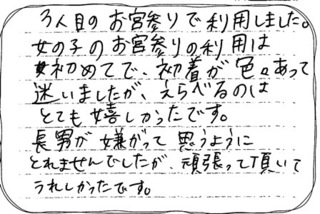 3人目のお宮参りで利用しました。
女の子のお宮参りの利用は
初めてで、初着が色々あって
迷いましたが、えらべるのは
とても嬉しかったです。
長男が嫌がって思うように
とれませんでしたが、頑張って頂いて
うれしかったです。